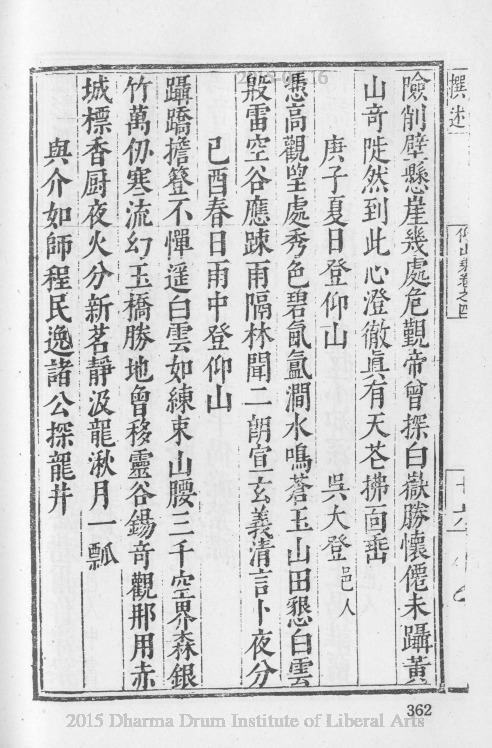 撰述
險削壁懸崖幾處危觀帝曾探白嶽勝懷僊未躡黃
山奇陡然到此心澄徹眞有天花拂面垂
庚子夏日登仰山 吳大登邑人
憑高觀望處秀色碧氤氳澗水鳴蒼玉山田懇白雲
殷雷空谷應踈雨隔林聞二朗宣玄義清言卜夜分
已酉春日雨中登仰山
躡蹻擔簦不憚遥白雲如練束山腰三千空界森銀
竹萬仞寒流幻玉橋勝地曾移靈谷錫奇觀那用赤
城標香厨夜火分新茗靜汲龍湫月一瓢
與介如師程民逸諸公探龍井
仰山乘卷之四
362
2015 Dharma Drum Institute of Liberal Arts